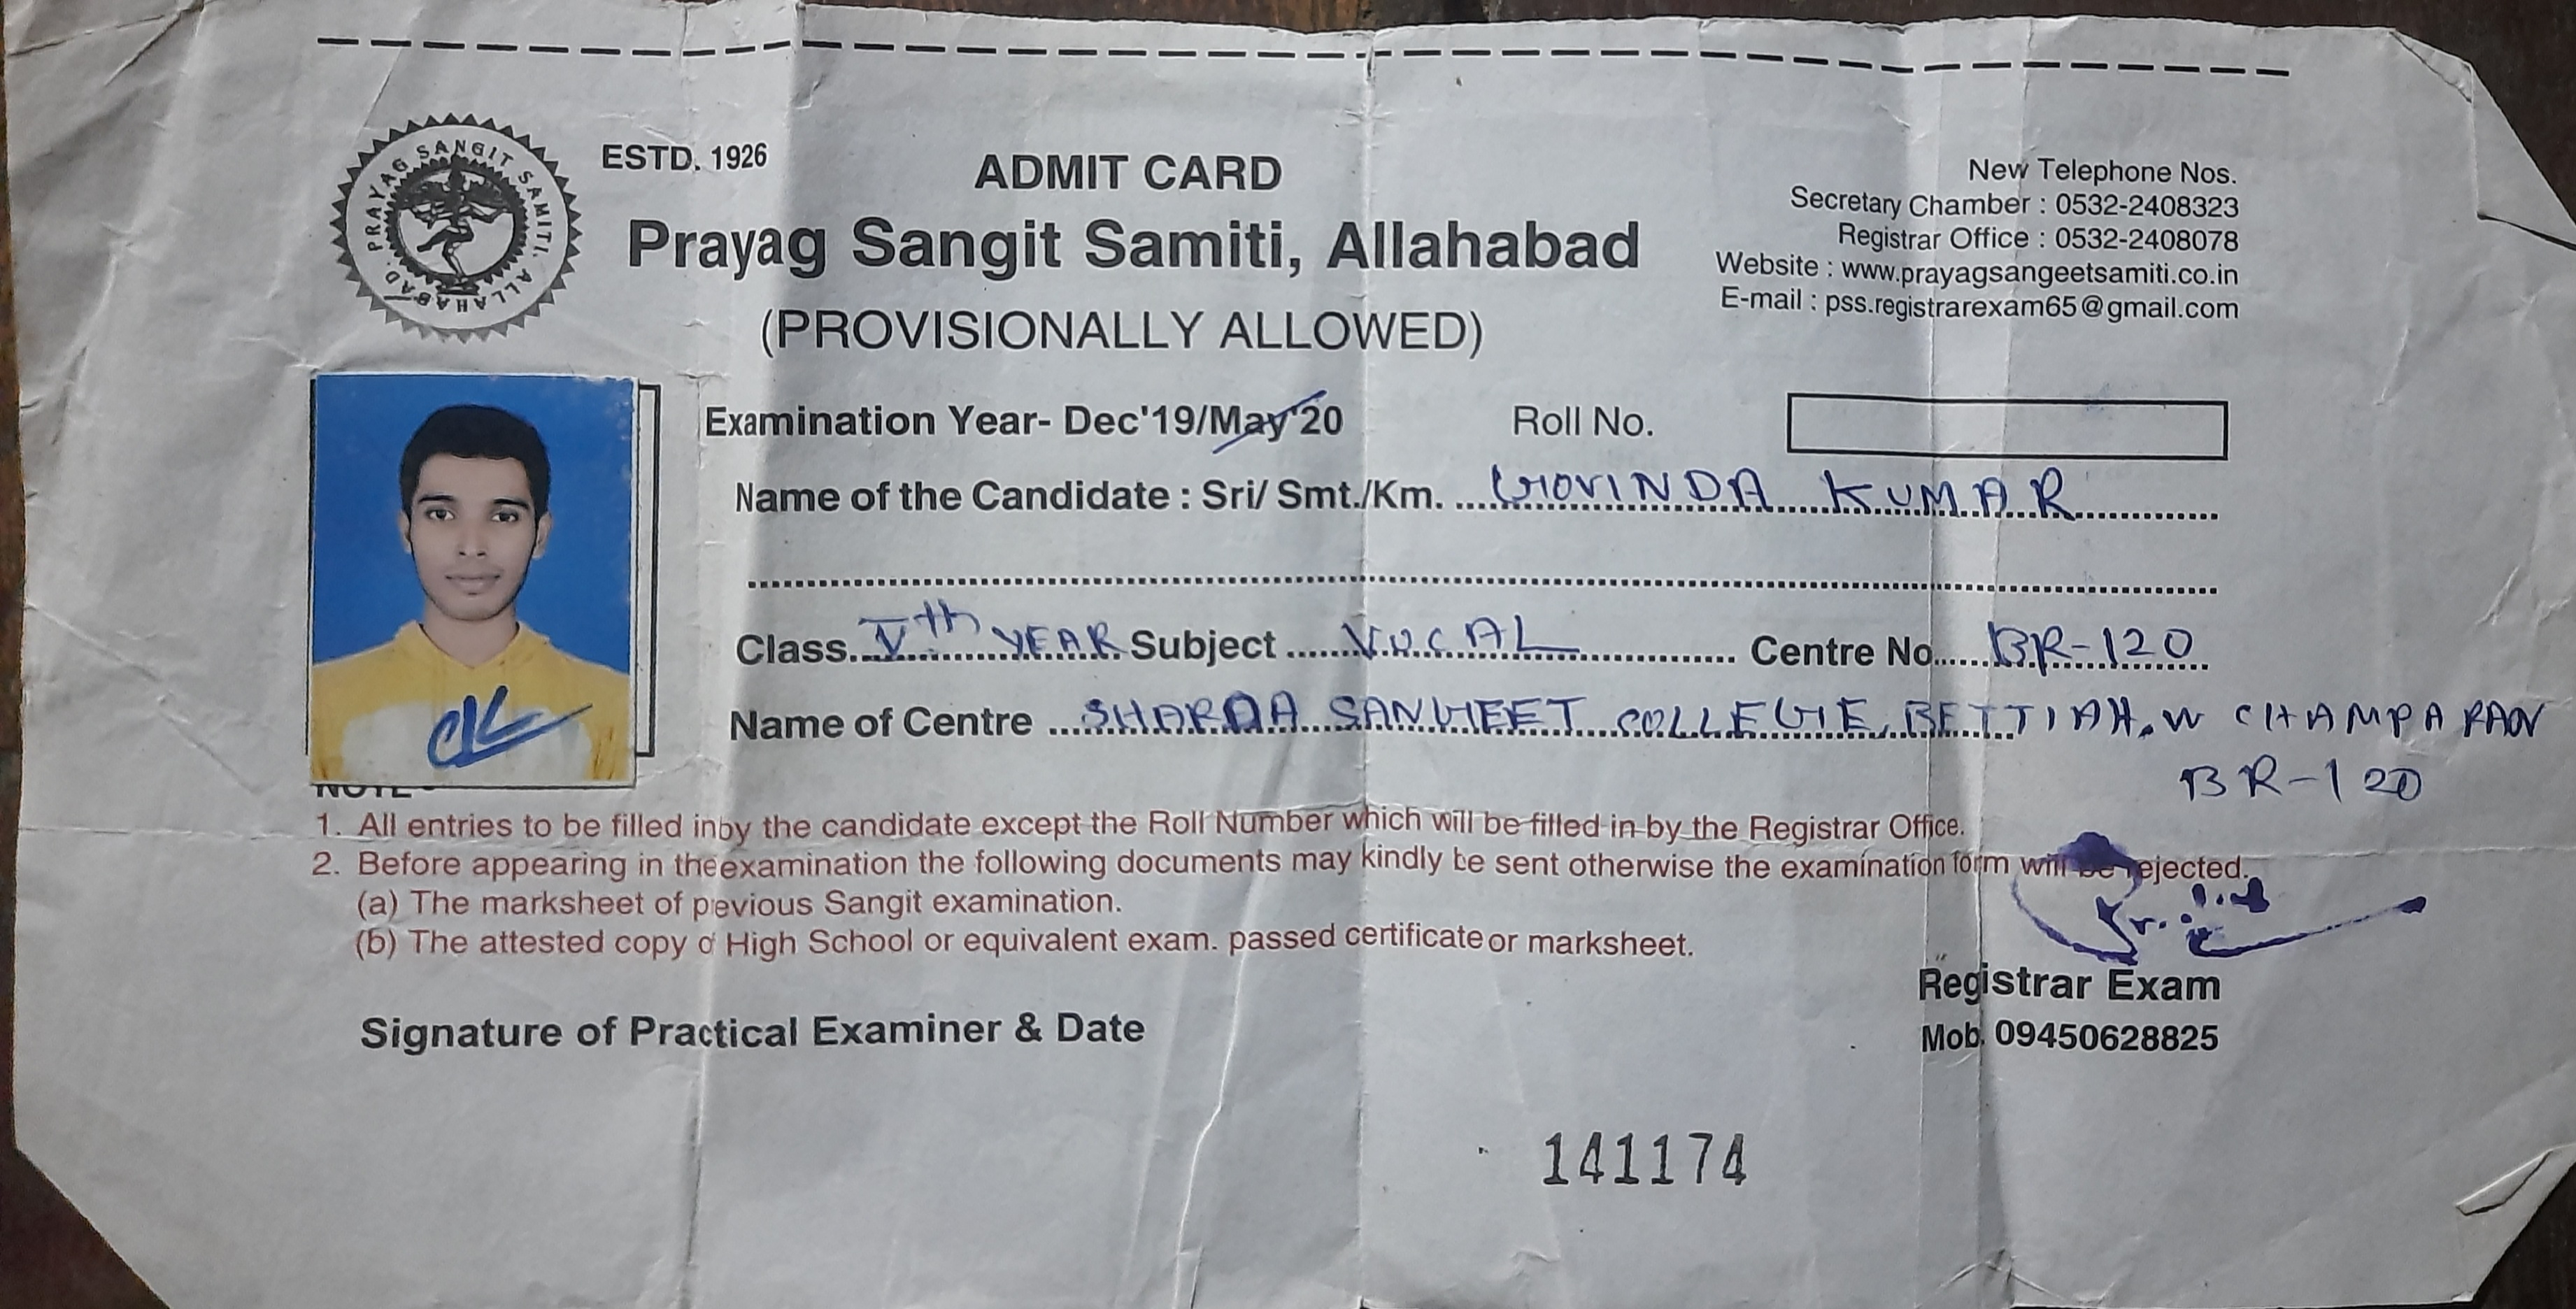 PRAYAG SANGIT SAMITI. ALLAHABAD.
ESTD. 1926
ADMIT CARD
Prayag Sangit Samiti, Allahabad
(PROVISIONALLY ALLOWED)
New Telephone Nos.
Secretary Chamber : 0532-2408323
Registrar Office : 0532-2408078
Website : www.prayagsangeetsamiti.co.in
E-mail : pss.registrarexam65@gmail.com
Examination Year- Dec'19/May'20 Roll No.
Name of the Candidate : Sri/ Smt./Km. GOVINDA KUMAR
Class Vth YEAR Subject VOCAL Centre No. BR-120
Name of Centre SHARDA SANGEET COLLEGE, BETTIAH. W CHAMPARAN
BR-120
NOTE -
1. All entries to be filled inby the candidate except the Roll Number which will be filled in by the Registrar Office.
2. Before appearing in the examination the following documents may kindly be sent otherwise the examination form will be rejected.
(a) The marksheet of previous Sangit examination.
(b) The attested copy of High School or equivalent exam. passed certificate or marksheet.
Registrar Exam
Mob. 09450628825
Signature of Practical Examiner & Date
141174